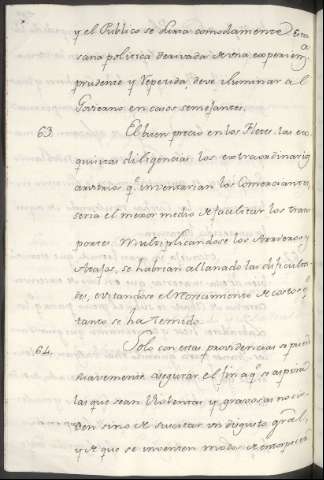 y el Publico se dicra comodamente. Esta
sana politica derivada de una experien,,
prudente y repetida, deve iluminar al
Govierno en casos semejantes.
63. El buen precio en los Fletes, las ex-
quisitas diligencias, los extraordinarios
arvitrios q.e inventarian los Comerciantes,
seria el mexor medio de facilitar los trans
portes. Multiplicandose los Arrieros, y
Atajos, se habrian allanado las dificulta
des, evitandose el Moncamiento de costos q.e
tanto se ha temido.
64. Solo con estas providencias se puede
suavemente asegurar el fin a q.e se aspira:
las que sean violentas, y gravosas no sir-
ven sino de suscitar un disgusto gral,
y de que se inventen modos de entorpecer